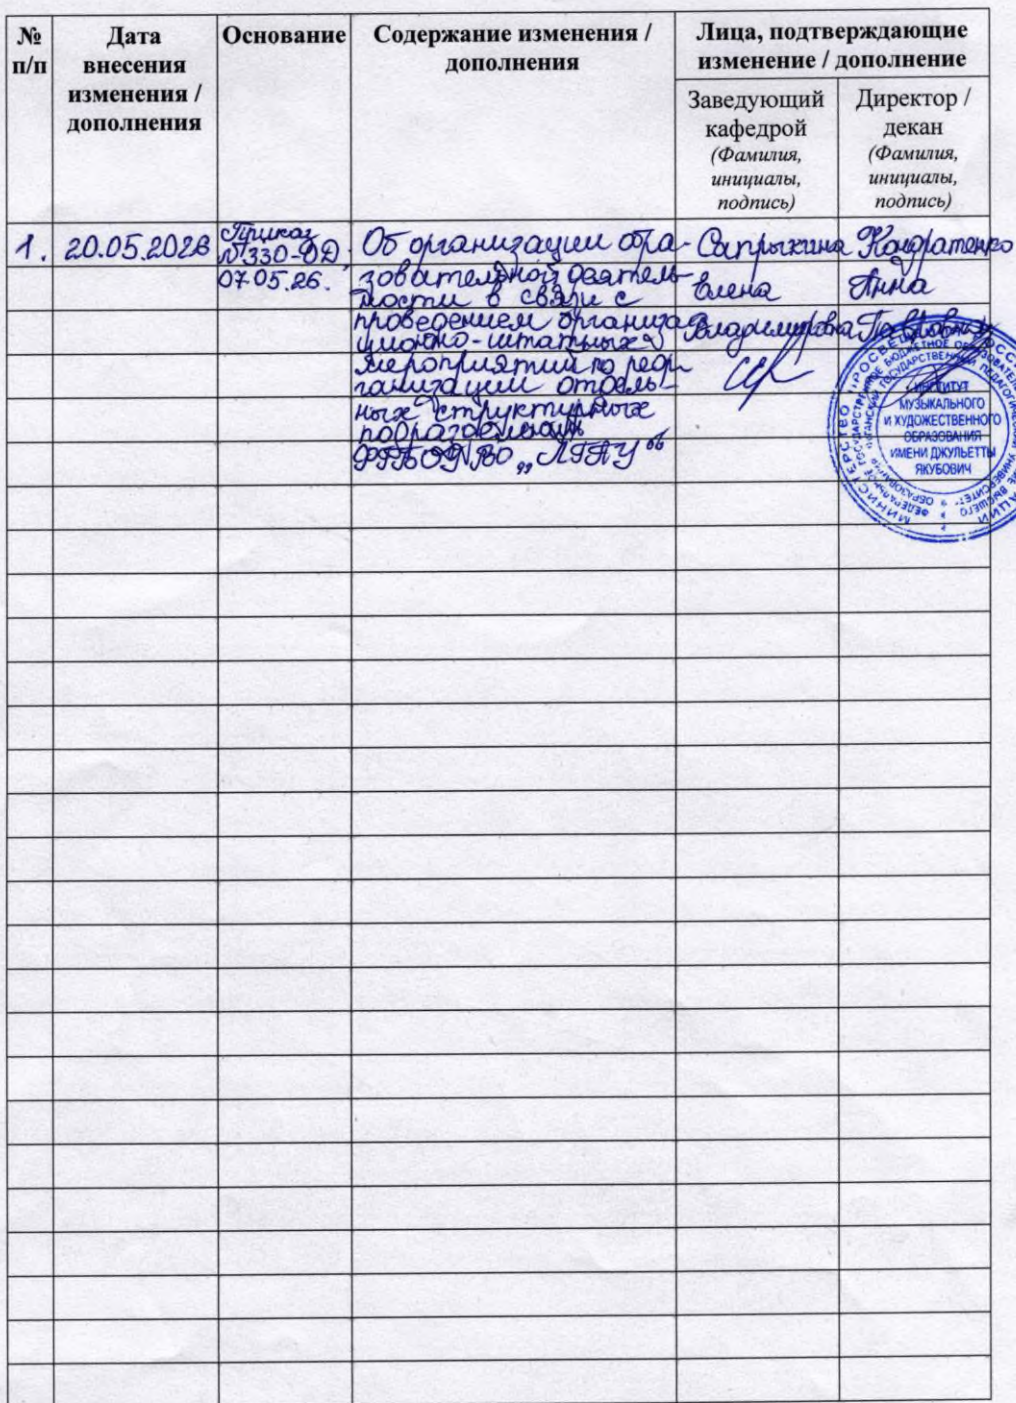 № п/п
Дата внесения изменения / дополнения
Основание
Содержание изменения / дополнения
Лица, подтверждающие изменение / дополнение
Заведующий кафедрой (Фамилия, инициалы, подпись)
Директор / декан (Фамилия, инициалы, подпись)
1.
20.05.2026
Приказ
№330-ОД
07.05.26.
Об организации обра-
зовательной деятель-
ности в связи с
проведением организа
ционно-штатных
мероприятий по реор
ганизации отдель-
ных структурных
подразделений
ФГБОУ ВО „ЛГПУ“
Сапрыкина
Елена
Владимировна
Кондратенко
Анна
Павловна
ИНСТИТУТ
МУЗЫКАЛЬНОГО
И ХУДОЖЕСТВЕННОГО
ОБРАЗОВАНИЯ
ИМЕНИ ДЖУЛЬЕТТЫ
ЯКУБОВИЧ